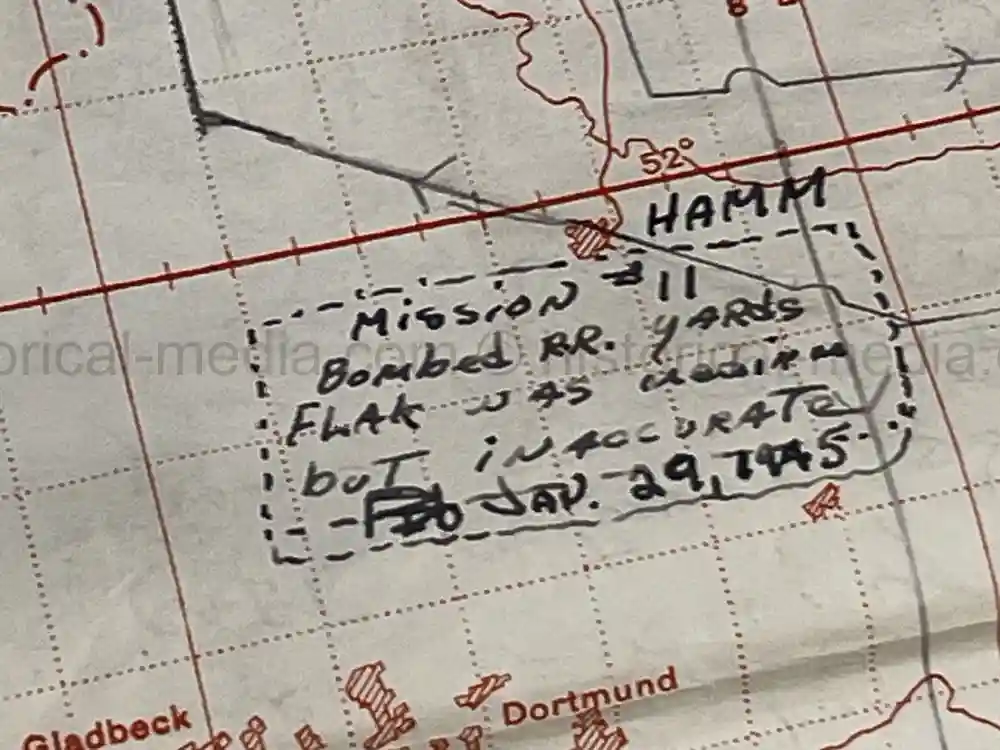 8
52°
HAMM
MISSION #11
BOMBED RR. YARDS
FLAK WAS
BUT INACCURATE
JAN. 29, 1945
Gladbeck
Dortmund
orical-media.com © historical-media.